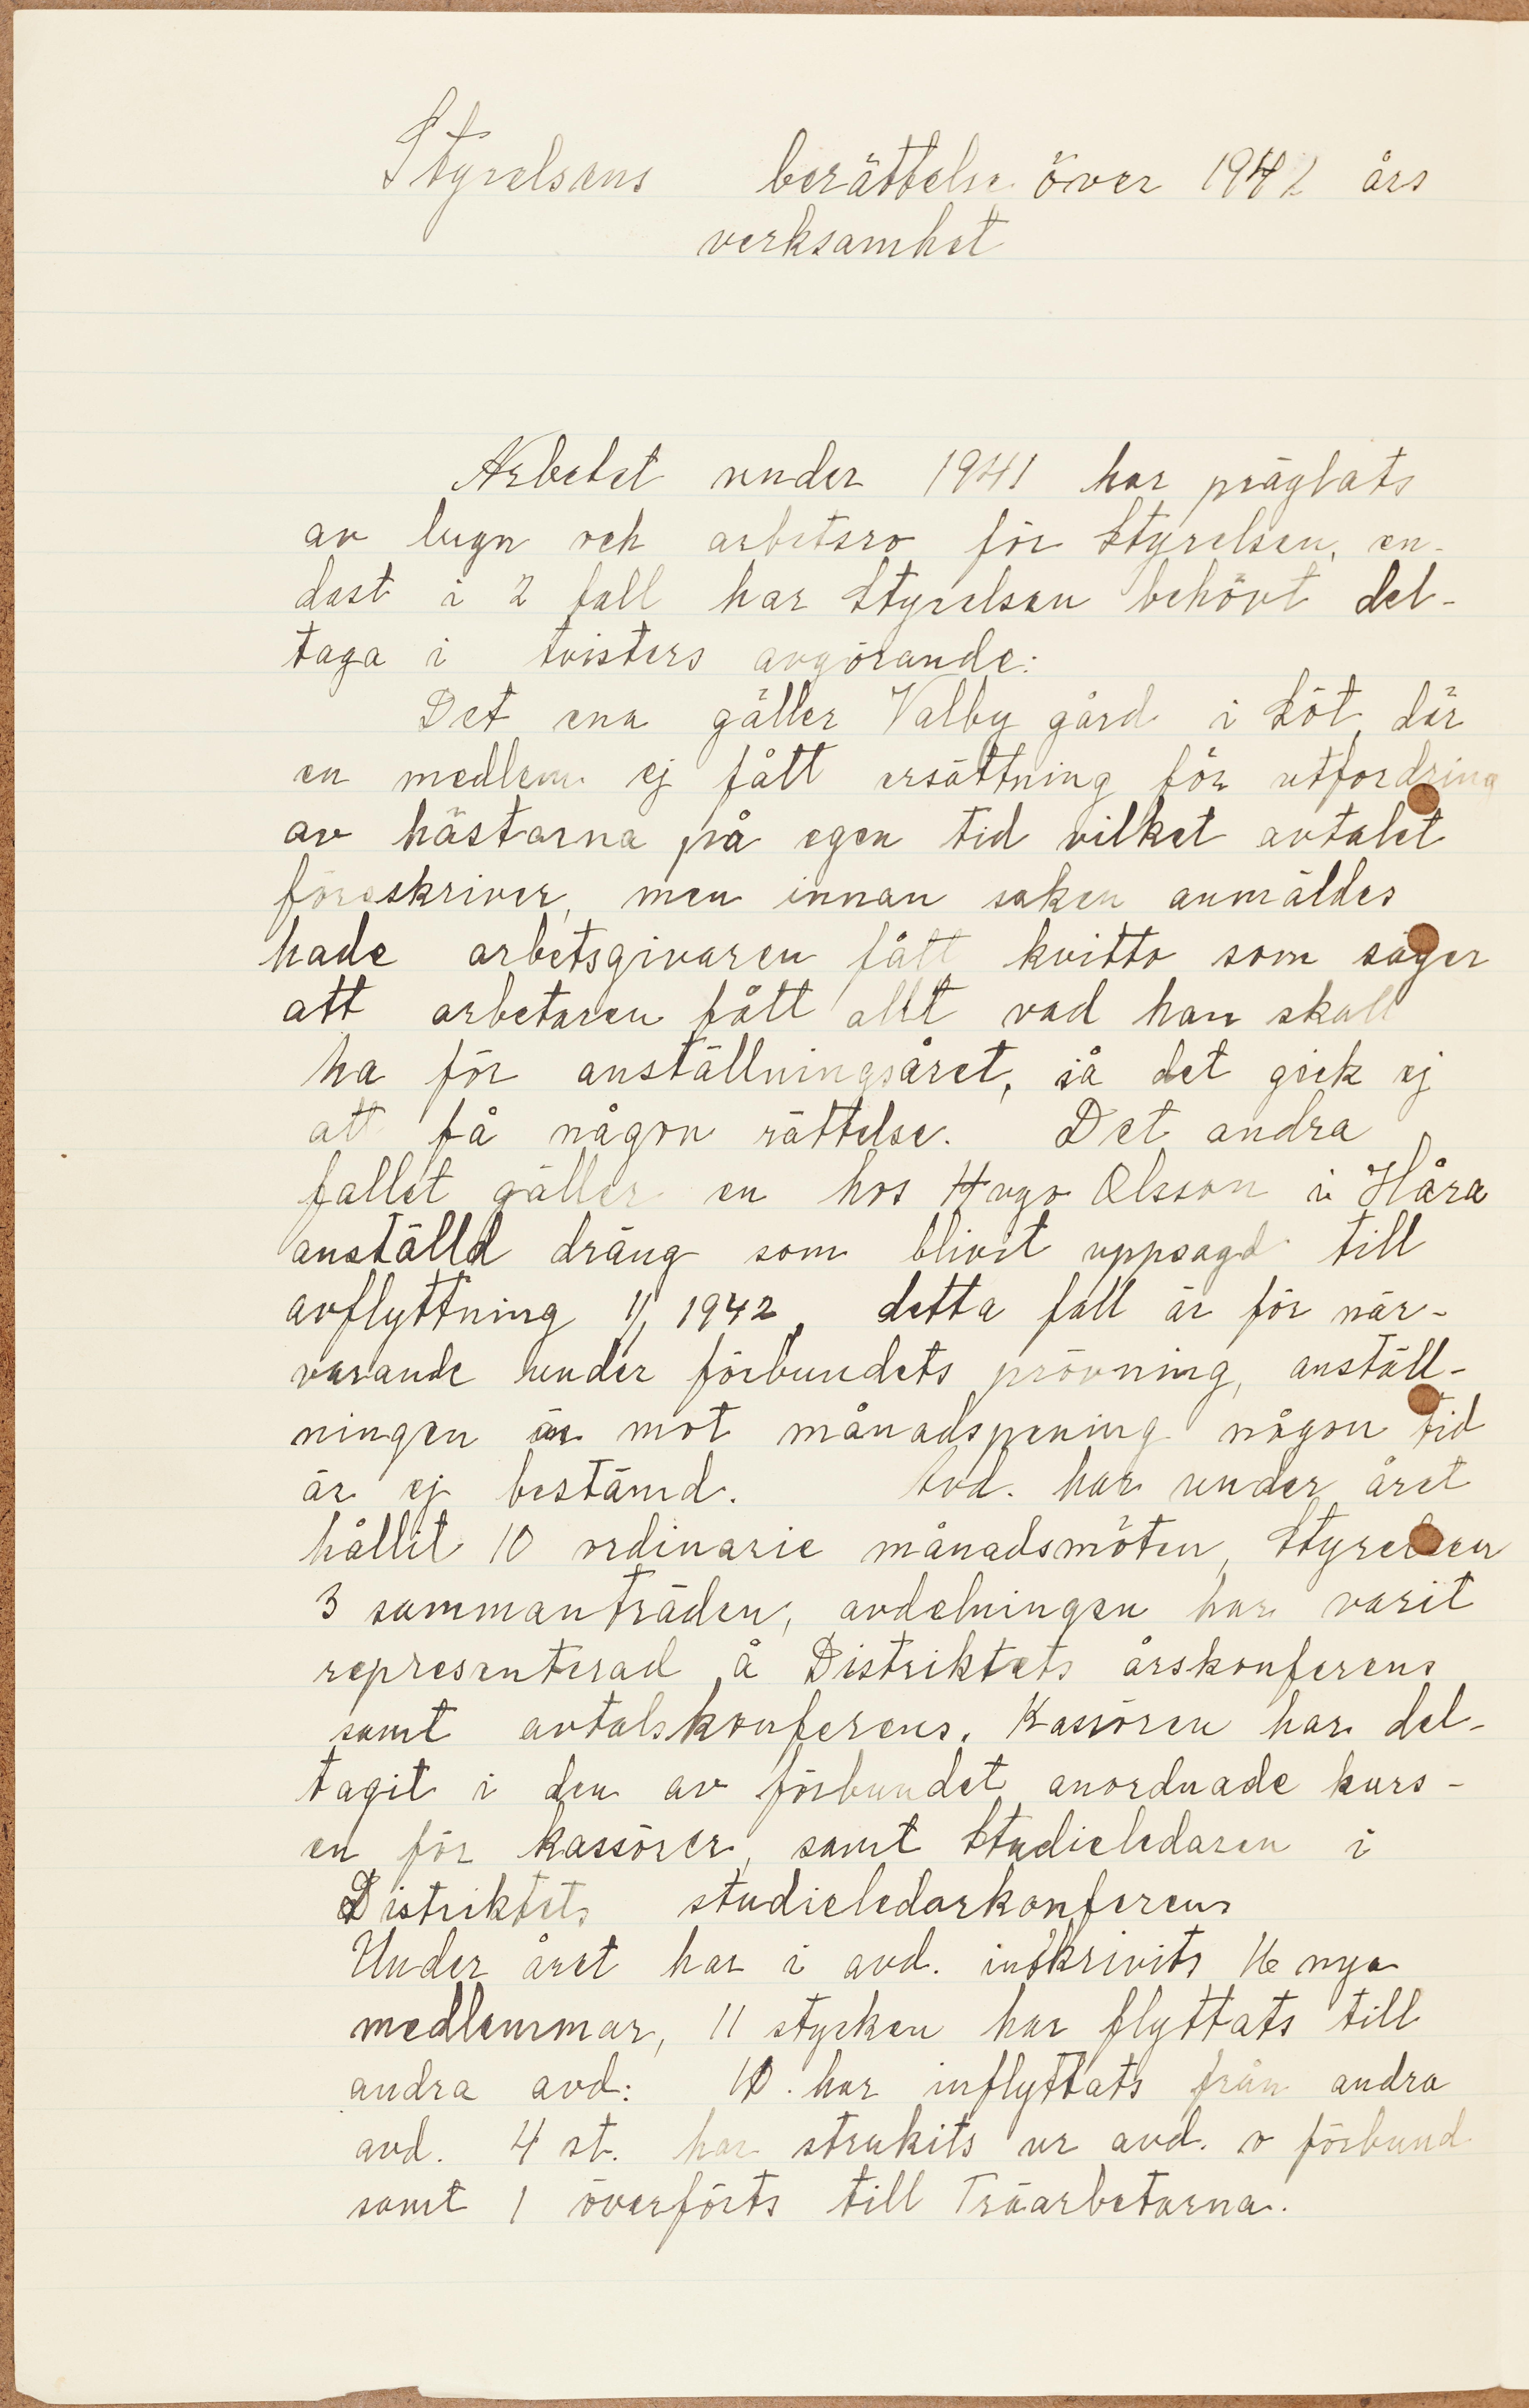 Styrelsens berättelse över 1941 års
verksamhet
Arbetet under 1941 har präglats
av lugn och arbetsro för Styrelsen, en-
dast i 2 fall har Styrelsen behövt del-
taga i tvisters avgörande:
Det ena gäller Valby gård i Löt, där
en medlem ej fått ersättning för utfordring
av hästarna på egen tid vilket avtalet
föreskriver, men innan saken anmäldes
hade arbetsgivaren fått kvitto som säger
att arbetaren fått allt vad han skall
ha för anställningsåret, så det gick ej
att få någon rättelse. Det andra
fallet gäller en hos Hugo Olsson i Håra
anställd dräng som blivit uppsagd till
avflyttning 1/1 1942, detta fall är för när-
varande under förbundets prövning, anställ-
ningen är mot månadspening någon tid
är ej bestämd. Avd. har under året
hållit 10 ordinarie månadsmöten, Styrelsen
3 sammanträden, avdelningen har varit
representerad å Distriktets årskonferens
samt avtalskonferens. Kassören har del-
tagit i den av förbundet anordnade kurs-
en för kassörer, samt Studieledaren i
Distriktets studieledarkonferens
Under året har i avd. inskrivits 16 nya
medlemmar, 11 stycken har flyttats till
andra avd: 10. har inflyttats från andra
avd. 4 st. har strukits ur avd. o förbund
samt 1 överförts till Träarbetarna.